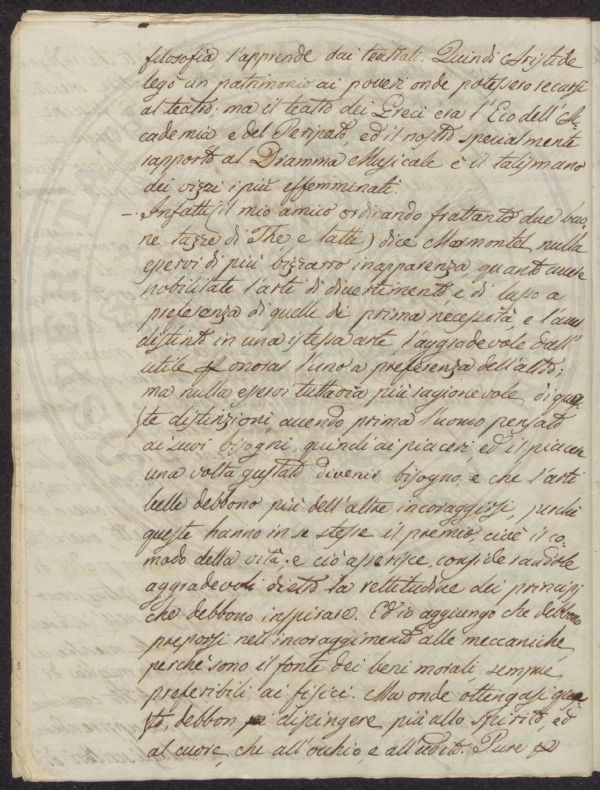 filosofia l'apprende dai teatrali. Quindi Aristide
legò un patrimonio ai poveri onde potessero recarsi
al teatro; ma il teatro dei Greci era l'Eco dell'Ac-
cademia e del Peripato, ed il nostro specialmente
rapporto al Dramma Musicale è il talismano
dei vizzi i più effemminati.
- Infatti (il mio amico ordinando frattanto due buo-
ne tazze di The e latte) dice Marmontel nulla
esservi di più bizzarro in apparenza, quanto avere
nobilitate l'arti di divertimento e di lusso a
preferenza di quelle di prima necessità, e l'aver
distinto in una istessa arte, l'aggradevole dall'
utile onorar l'uno a preferenza dell'altro;
ma nulla esservi tuttavia più ragionevole di que-
ste distinzioni, avendo prima l'uomo pensato
ai suoi bisogni, quindi ai piaceri ed il piacere
una volta gustato divenir bisogno, e che l'arti
belle debbono più dell'altre incoraggirsi, perché
queste hanno in se stesse il premio, cioè il co-
modo della vita, e ciò asserisce, considerandole
aggradevoli dietro la rettitudine dei principj
che debbono inspirare. Ed io aggiungo che debbono
preporsi nell'incoraggimento alle meccaniche,
perché sono il fonte dei beni morali, sempre
preferibili ai fisici. Ma onde ottengasi que-
sto, debbon dipingere più allo spirito, ed
al cuore, che all'occhio, e all'udito. Pure